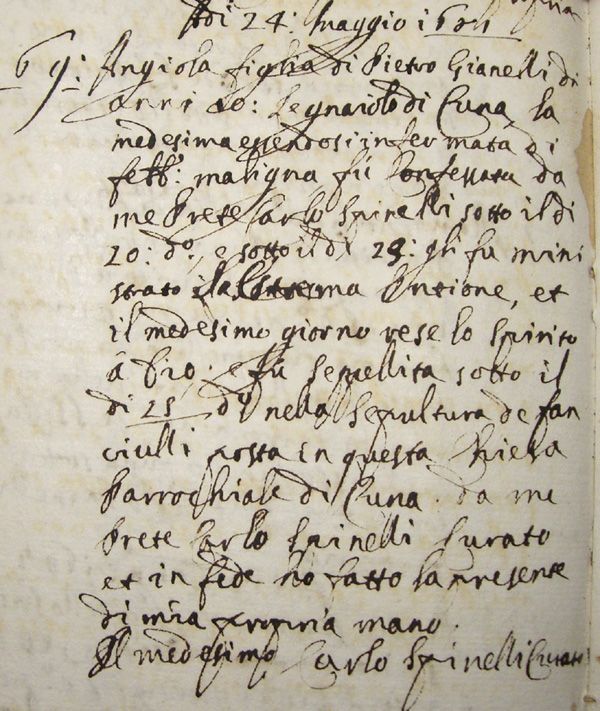 Adi 24: Maggio
69: Angiola figlia di Pietro Gianelli di
anni Legnaiolo di Cuna, la
medesima essendosi infermata di
febb: maligna fù Confessata da
me Prete Carlo Spinelli sotto il di
20: do, e sotto il di 23: gli fu mini
strato Estrema Untione, et
il medesimo giorno rese lo Spirito
à Dio: e fu Sepellita sotto il
di 25 do nella Sepultura de fan
ciulli posta in questa Chiesa
Parrochiale di Cuna. da me
Prete Carlo Spinelli Curato
et in fede hò fatto la presente
di mia propria mano.
Il medesimo Carlo Spinelli Curato